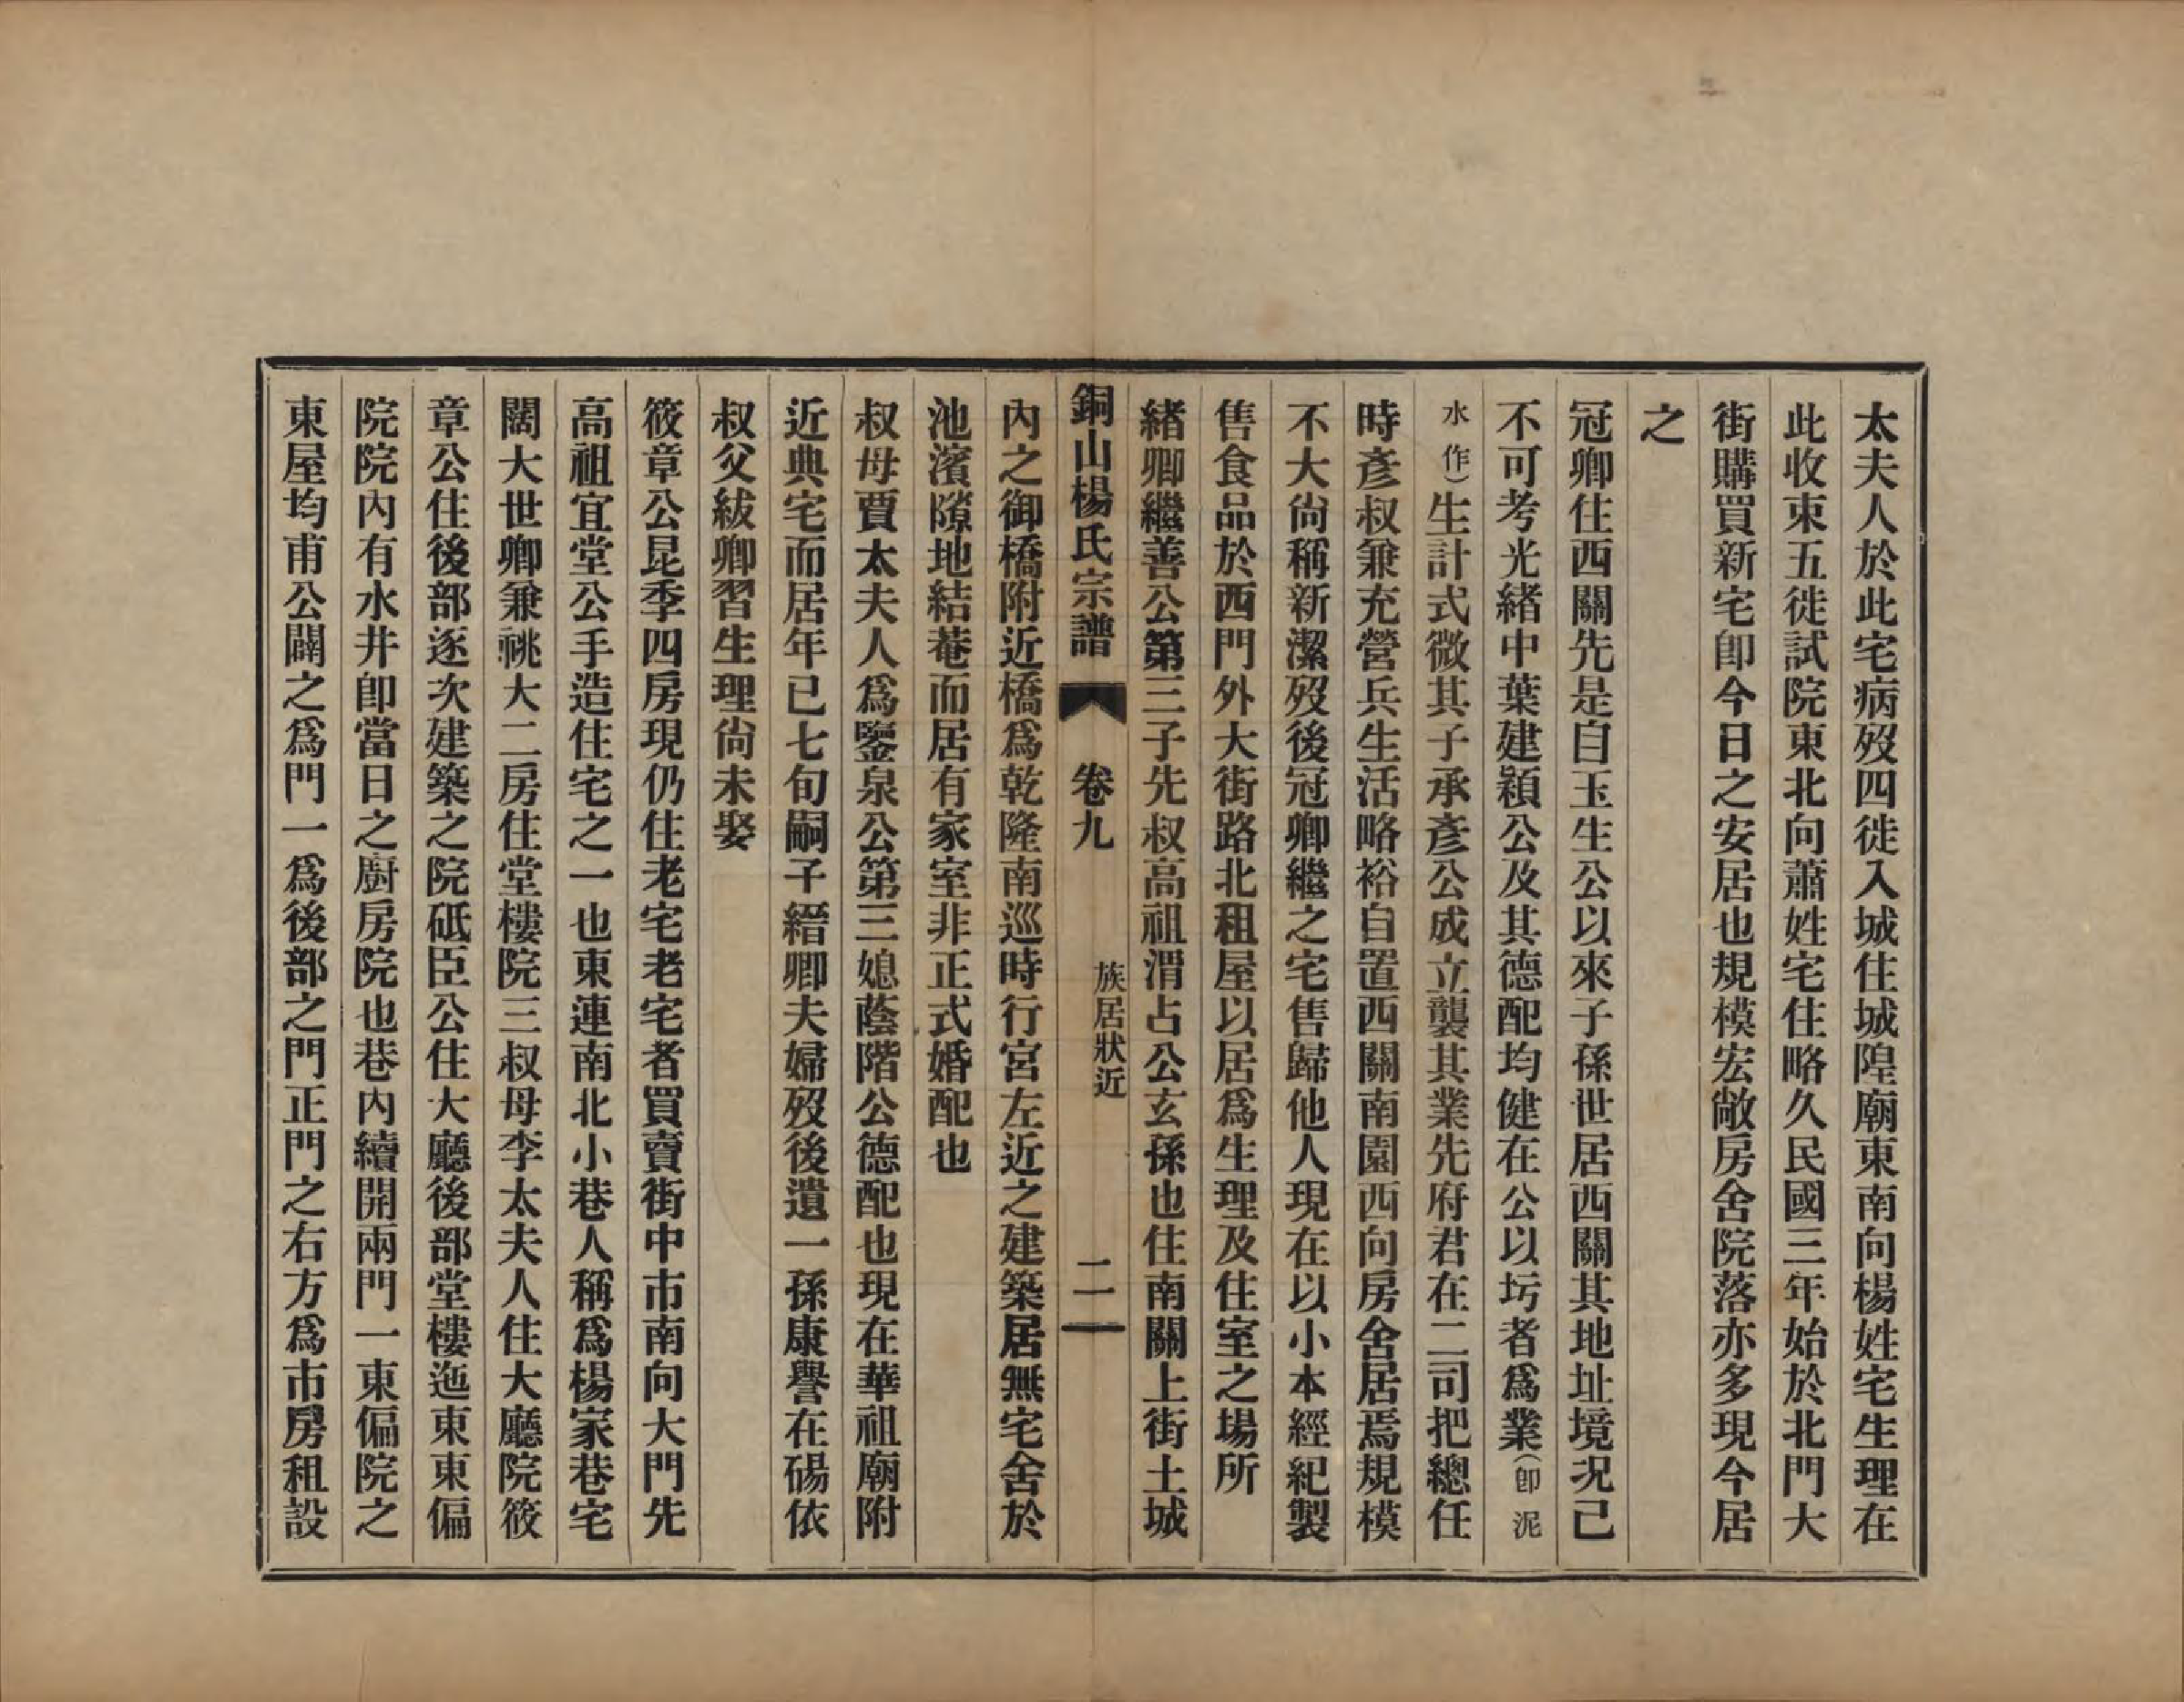 太夫人於此宅病歿四徙入城住城隍廟東南向楊姓宅生理在
此收束五徙試院東北向蕭姓宅住略久民國三年始於北門大
街購買新宅卽今日之安居也規模宏敞房舍院落亦多現今居
之
冠卿住西關先是自玉生公以來子孫世居西關其地址境況己
不可考光緒中葉建穎公及其德配均健在公以圬者爲業(卽泥
水作)生計式微其子承彥公成立襲其業先府君在二司把總任
時彥叔兼充營兵生活略裕自置西關南園西向房舍居焉規模
不大尙稱新潔歿後冠卿繼之宅售歸他人現在以小本經紀製
售食品於西門外大街路北租屋以居爲生理及住室之場所
緒卿繼善公第三子先叔高祖渭占公玄孫也住南關上街土城
銅山楊氏宗譜　卷九　族居狀近　二
內之御橋附近橋爲乾隆南巡時行宮左近之建築居無宅舍於
池濱隙地結菴而居有家室非正式婚配也
叔母賈太夫人爲鑒泉公第三媳蔭階公德配也現在華祖廟附
近典宅而居年已七旬嗣子縉卿夫婦歿後遺一孫康譽在碭依
叔父紱卿習生理尙未娶
筱章公昆季四房現仍住老宅老宅者買賣街中市南向大門先
高祖宜堂公手造住宅之一也東連南北小巷人稱爲楊家巷宅
闊大世卿兼祧大二房住堂樓院三叔母李太夫人住大廳院筱
章公住後部逐次建築之院砥臣公住大廳後部堂樓迤東東偏
院院內有水井卽當日之廚房院也巷內續開兩門一東偏院之
東屋均甫公闢之爲門一爲後部之門正門之右方爲市房租設